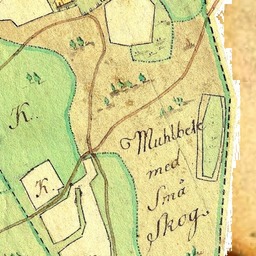 K.
K.
Muhlbete
med
Små
Skog.